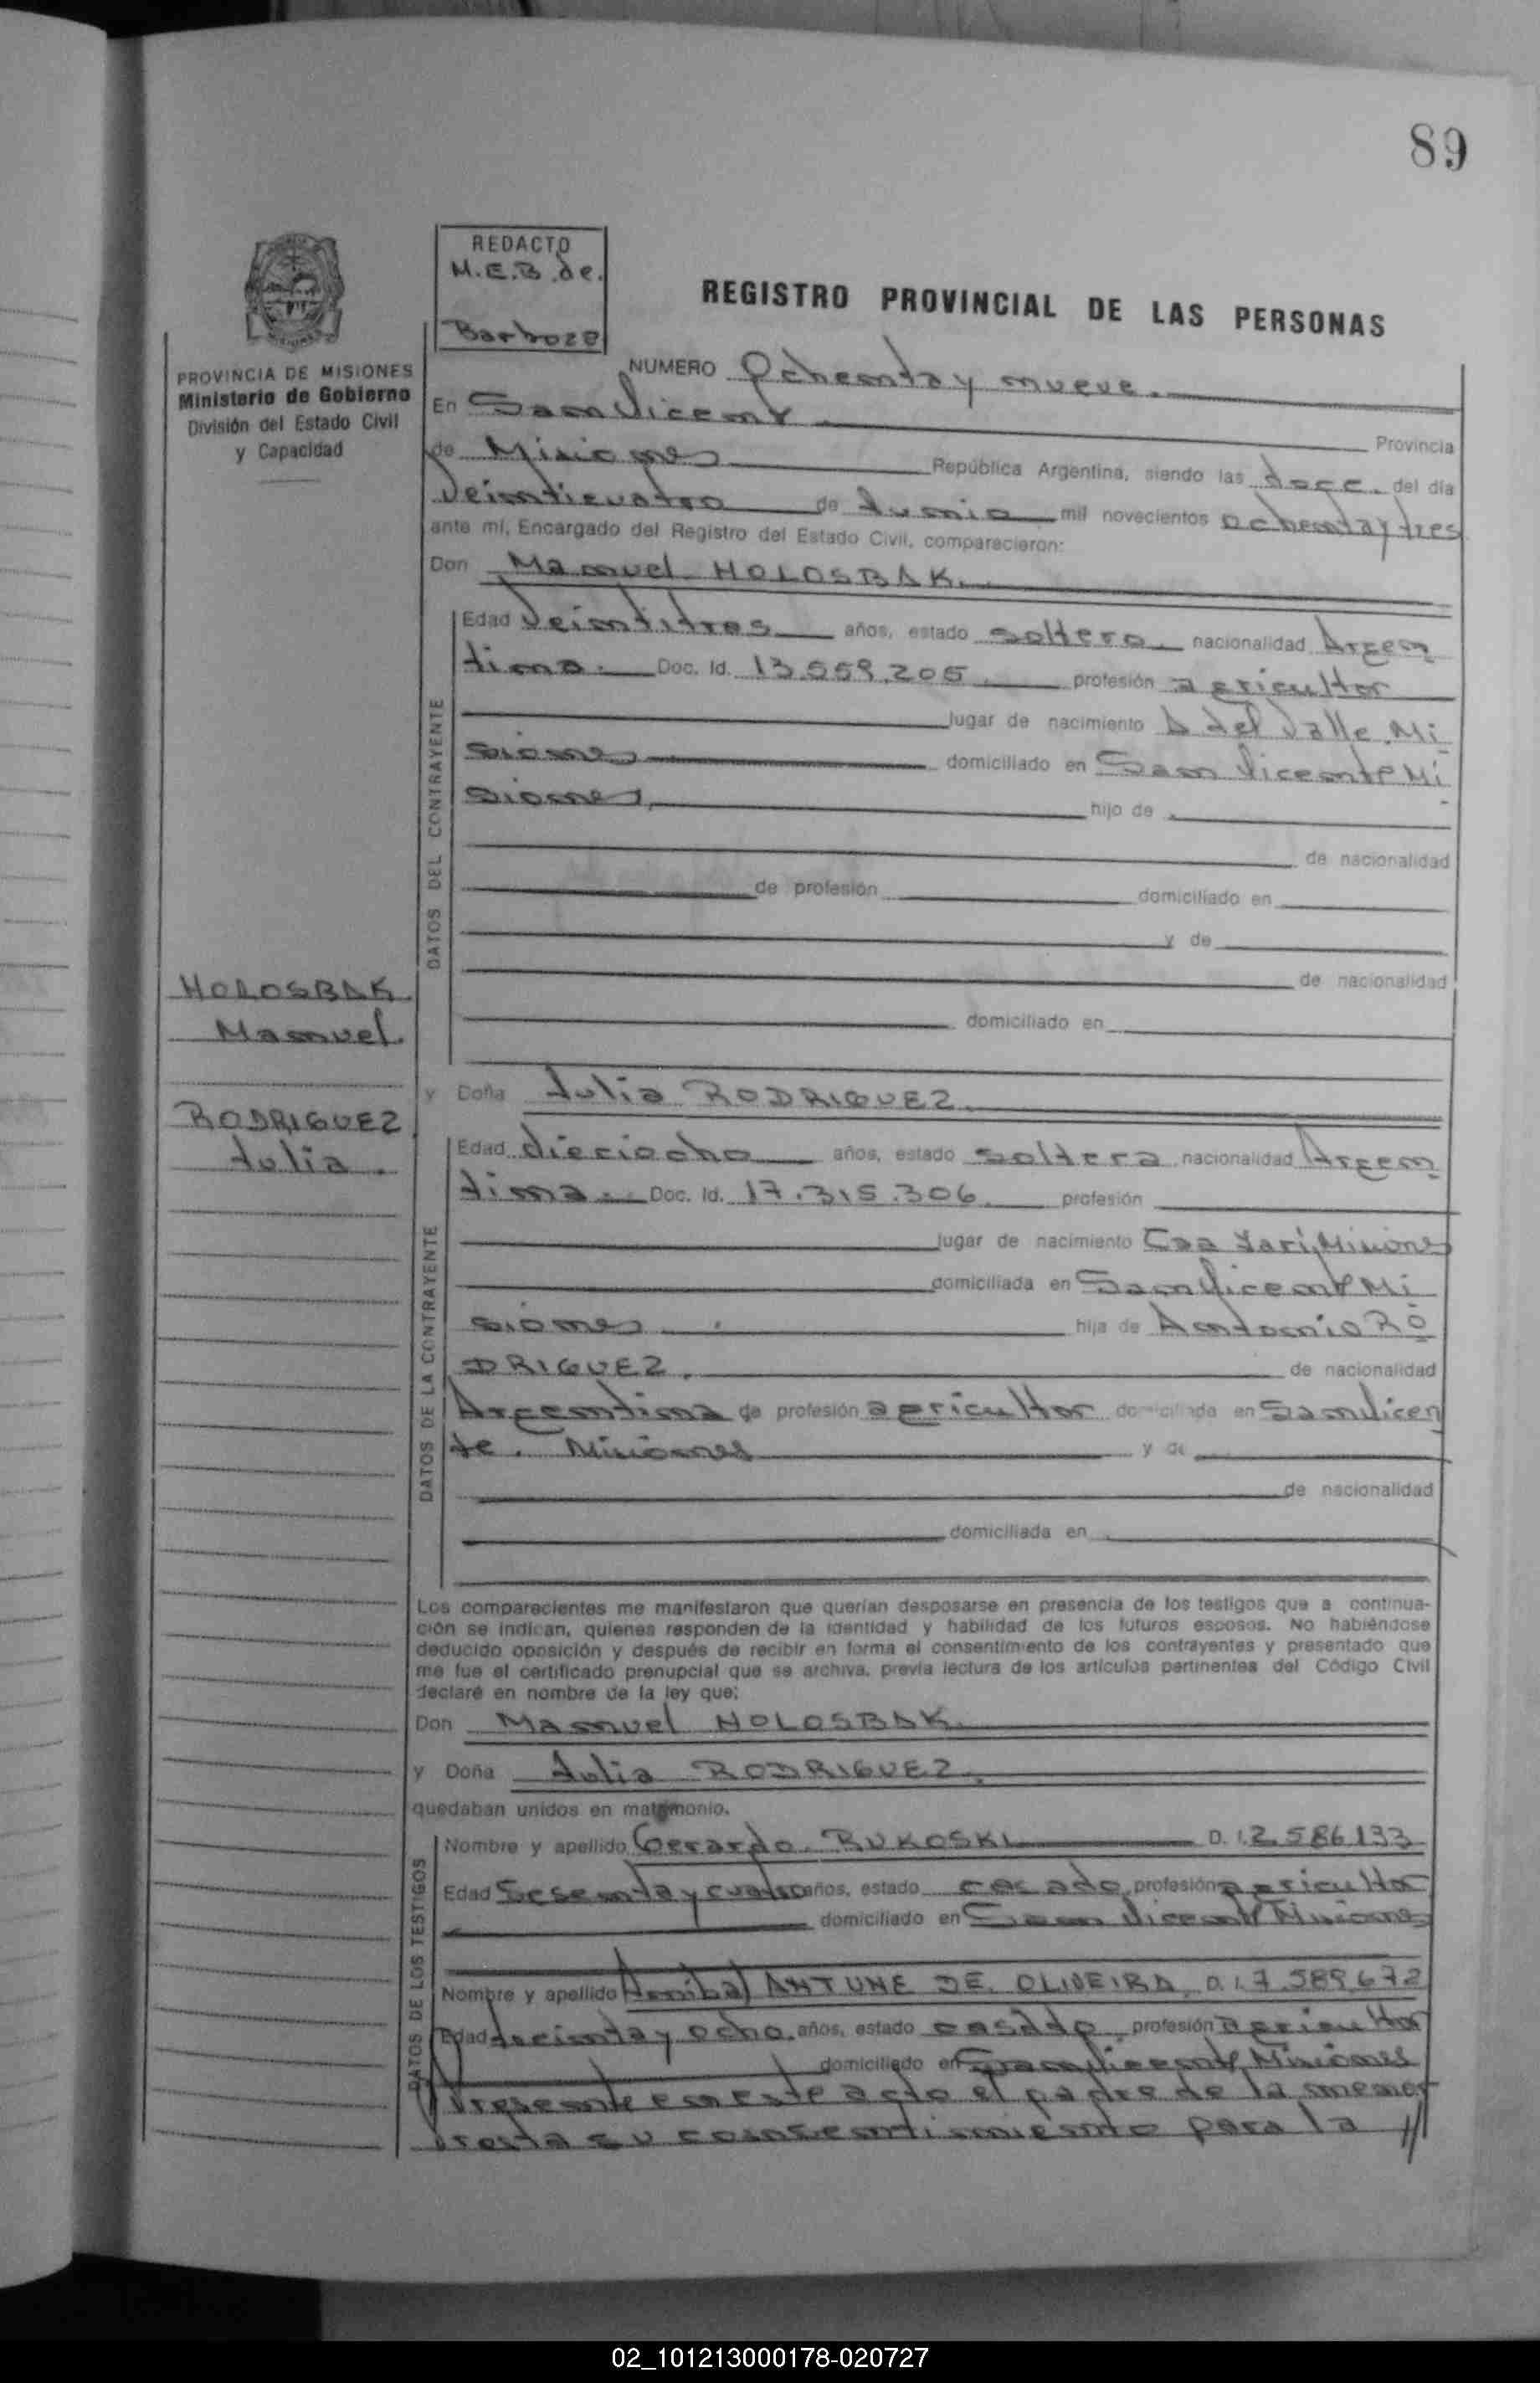 89
REDACTO
M.E.B. de.
Barboza
REGISTRO PROVINCIAL DE LAS PERSONAS
PROVINCIA DE MISIONES
Ministerio de Gobierno
División del Estado Civil
y Capacidad
NUMERO Ochenta y nueve.
En San Vicente Provincia
de Misiones República Argentina, siendo las doce. del día
Veinticuatro de Junio mil novecientos ochenta y tres
ante mí, Encargado del Registro del Estado Civil, comparecieron:
Don Manuel HOLOSBAK.
DATOS DEL CONTRAYENTE
Edad Veintitres años, estado soltero nacionalidad Argen
tina. Doc. Id. 13.559.205. profesión agricultor
lugar de nacimiento A del Valle. Mi
siones domiciliado en San Vicente Mi
siones. hijo de
de nacionalidad
de profesión domiciliado en
y de
de nacionalidad
domiciliado en
HOLOSBAK
Manuel.
RODRIGUEZ
Julia.
y Doña Julia RODRIGUEZ.
DATOS DE LA CONTRAYENTE
Edad dieciocho años, estado soltera nacionalidad Argen
tina. Doc. Id. 17.315.306. profesión
lugar de nacimiento Caa Yarí, Misiones
domiciliada en San Vicente Mi
siones. hija de Antonio RO
DRIGUEZ. de nacionalidad
Argentina de profesión agricultor domiciliado en San Vicen
te. Misiones y de
de nacionalidad
domiciliada en
Los comparecientes me manifestaron que querían desposarse en presencia de los testigos que a continua-
ción se indican, quienes responden de la identidad y habilidad de los futuros esposos. No habiéndose
deducido oposición y después de recibir en forma el consentimiento de los contrayentes y presentado que
me fue el certificado prenupcial que se archiva, previa lectura de los artículos pertinentes del Código Civil
declaré en nombre de la ley que:
Don Manuel HOLOSBAK.
y Doña Julia RODRIGUEZ.
quedaban unidos en matrimonio.
DATOS DE LOS TESTIGOS
Nombre y apellido Gerardo. BUKOSKI D. I. 2.586.133
Edad Sesenta y cuatro años, estado casado, profesión agricultor
domiciliado en San Vicente Misiones
Nombre y apellido Anibal ANTUNE DE OLIVEIRA, D.I. 7.589.672
Edad treinta y ocho. años, estado casado, profesión agricultor
domiciliado en San Vicente, Misiones
Presente en este acto el padre de la menor
presta su consentimiento para la //
02_101213000178-020727